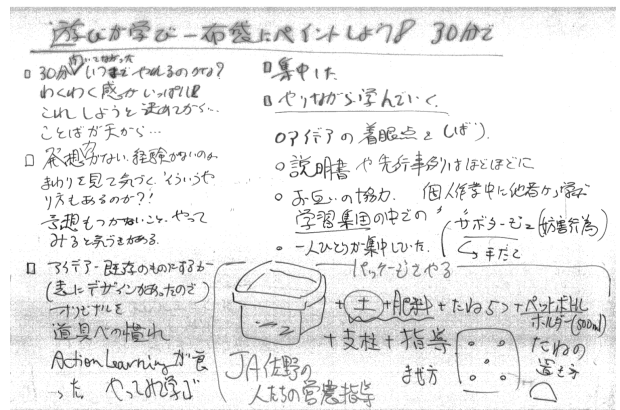 遊びか学びー布袋にペイントしよう8 30分で
30分いつまでやれるのかな?
聞いてなかった
わくわく感がいっぱい
これしようと決めてから…
ことばが天から…
発想がない、経験がないのか
まわりを見て気づく、そういうや
り方もあるのか?!
予想もつかないこと、やって
みると気づきがある
アイデアー既存のものにするか
(表にデザインがあったので)
オリジナルを
道具への慣れ
Action Learningが良
った やってみて学ぶ
集中した
やりながら学んでいく。
アイデアの着眼点を(しぼ)
説明書や先行事例はほどほどに
お互いの協力、個人作業中に他者から学ぶ
学習集団の中での
"サボタージュ"=(妨害行為)
→手だて
一人ひとりが集中していった。
パッケージをやる
+土+肥料+たね5つ+ペットボトル
ホルダー(500ml)
+支柱+指導
JA佐野の
人たちの営農指導
まき方
たねの
置き方